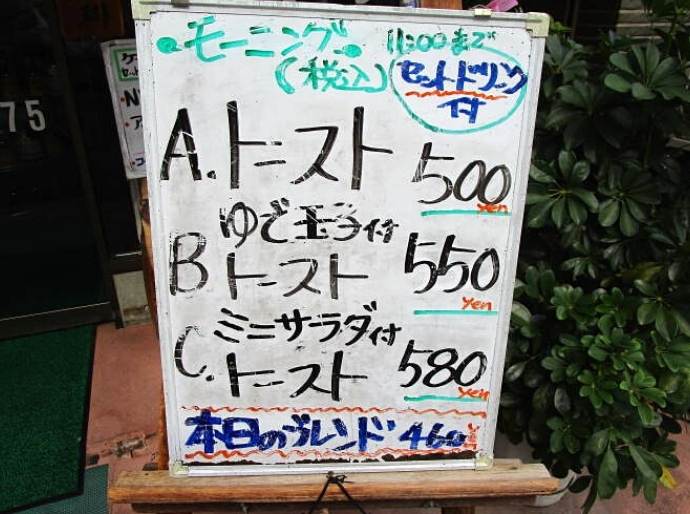 モーニング 11:00まで
(税込) セットドリンク
付
A. トースト 500
yen
ゆで玉子付
B トースト 550
yen
ミニサラダ付
C. トースト 580
yen
本日のブレンド 460
75